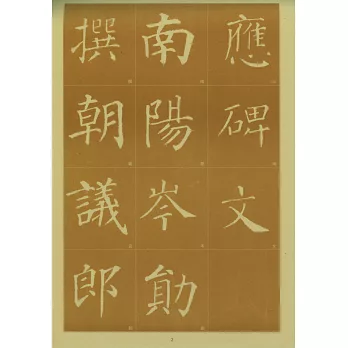 應碑文
南陽岑勛
撰朝議郎